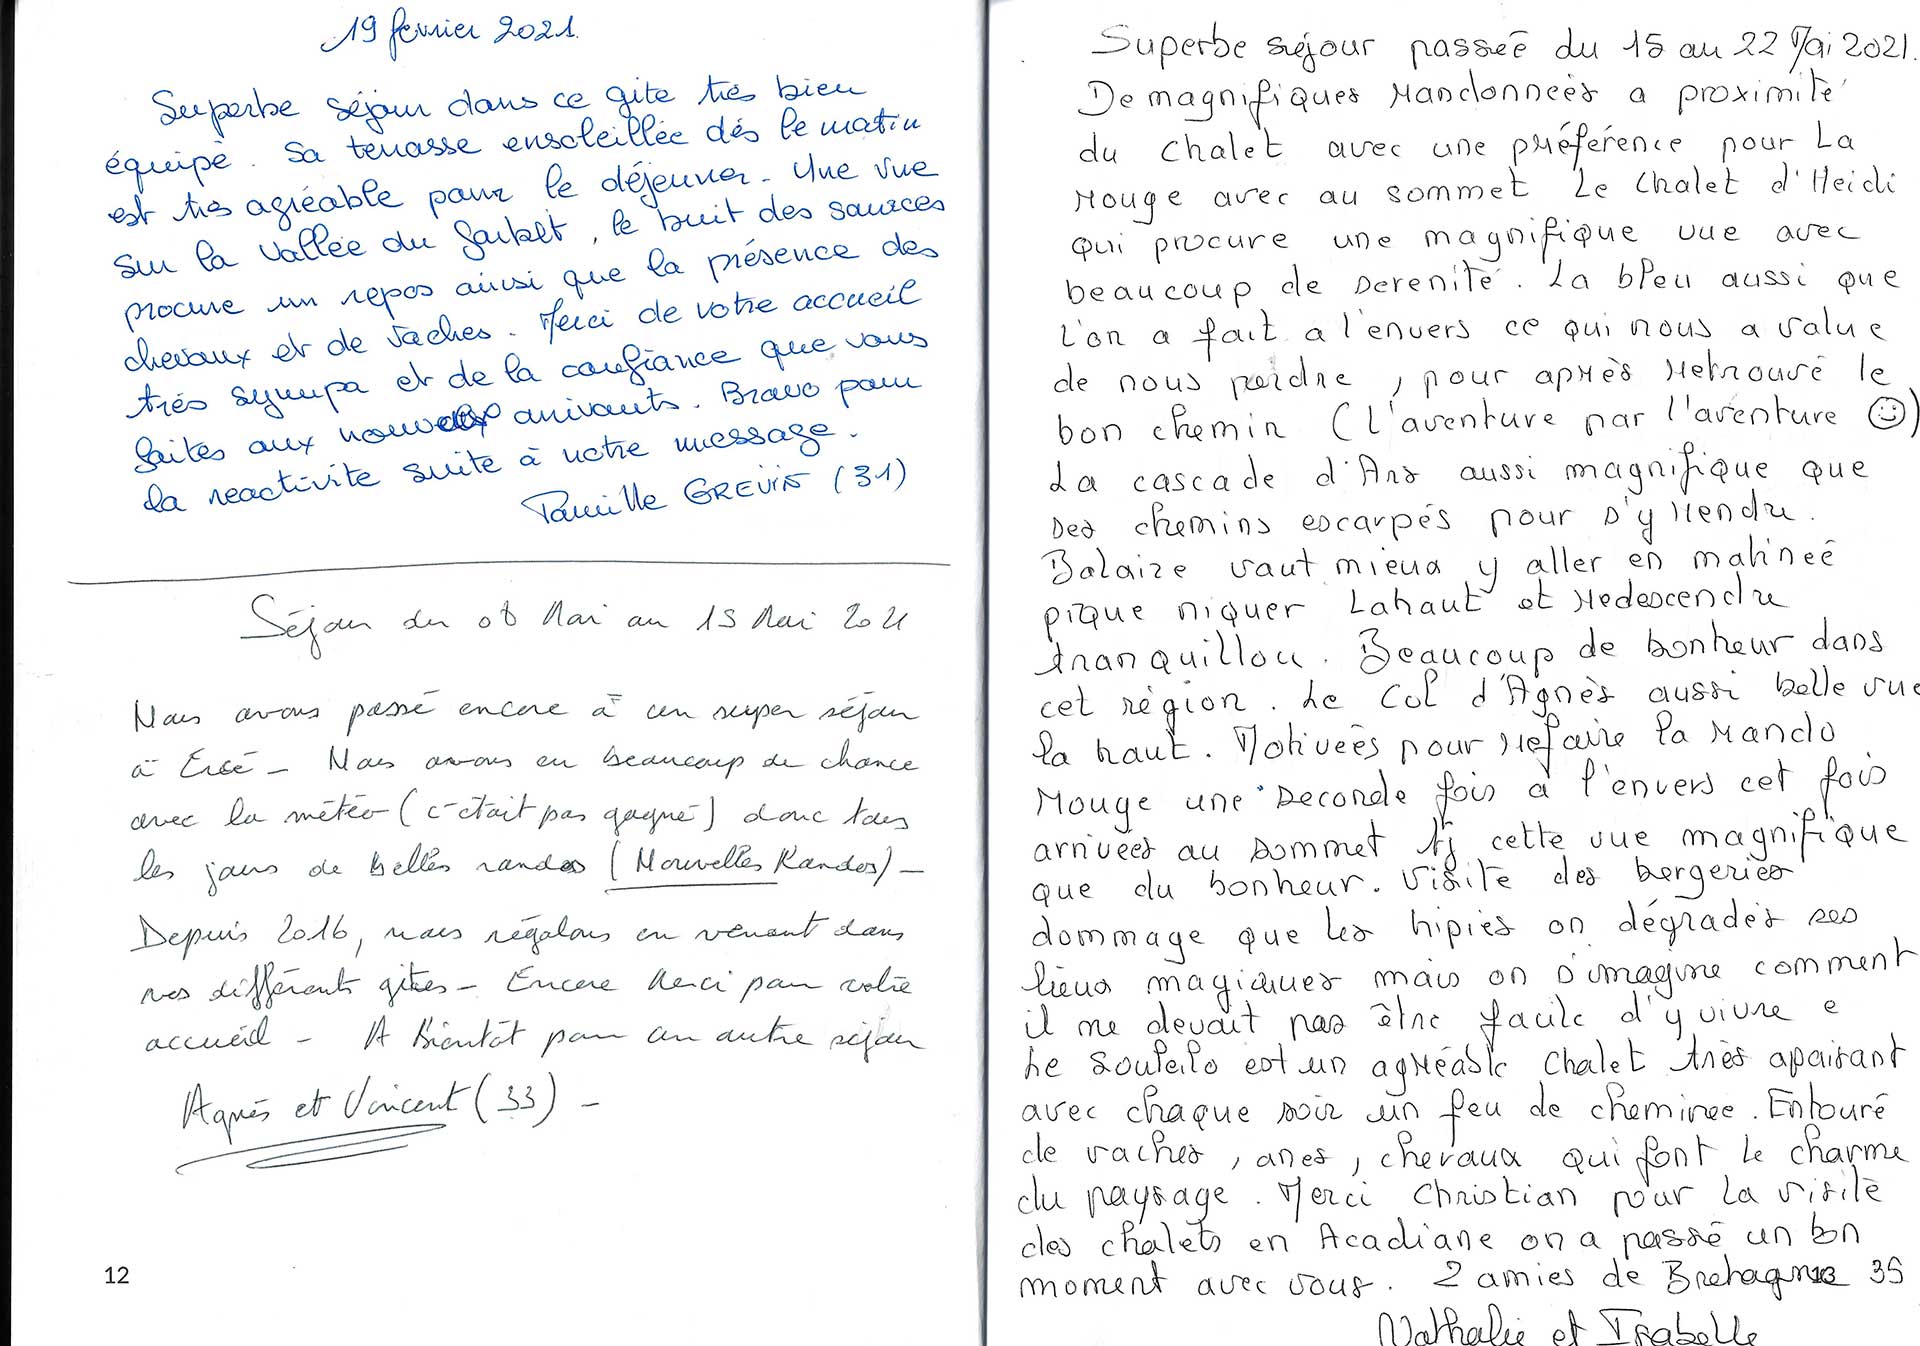 19 février 2021.
Superbe séjour dans ce gite très bien
équipé. Sa terrasse ensoleillée dés le matin
est très agréable pour le déjeuner. Une vue
sur la vallée du Garbet, le bruit des sources
procure un repos ainsi que la présence des
chevaux et de vaches. Merci de votre accueil
très sympa et de la confiance que vous
faites aux nouveaux arrivants. Bravo pour
la reactivité suite à notre message.
Famille GREVIN (31)
Séjour du 08 Mai au 15 Mai 2021
Nous avons passé encore à un super séjour
à Ercé - Nous avons eu beaucoup de chance
avec la météo (c'était pas gagné) donc tous
les jours de belles randos (Nouvelles Randos) -
Depuis 2016, nous régalons en venant dans
vos différents gites - Encore Merci pour votre
accueil - A Bientôt pour un autre séjour
Agnès et Vincent (33) -
12
Superbe séjour passée du 15 au 22 Mai 2021.
De magnifiques Randonnées a proximité
du chalet avec une préférence pour La
Rouge avec au sommet Le chalet d'Heidi
qui procure une magnifique vue avec
beaucoup de serenité. La bleu aussi que
l'on a fait a l'envers ce qui nous a value
de nous perdre, pour après Retrouvé le
bon chemin (L'aventure par l'aventure ☺)
La cascade d'Ars aussi magnifique que
ses chemins escarpés pour s'y Rendre.
Balaize vaut mieux y aller en matineé
pique niquer Lahaut et Redescendre
tranquillou. Beaucoup de bonheur dans
cet région. Le Col d'Agnès aussi belle vue
la haut. Motiveés pour Refaire la Rando
Rouge une seconde fois à l'envers cet fois
arrivées au sommet cette vue magnifique
que du bonheur. Visite des bergeries
dommage que les hipies on dégradés ses
lieux magiques mais on s'imagine comment
il ne devait pas être facile d'y vivre e
Le Souleilo est un agréable chalet très apaisant
avec chaque soir un feu de cheminee. Entouré
de vaches, anes, chevaux qui font le charme
du paysage. Merci Christian pour la visite
des chalets en Acadiane on a passé un bon
moment avec vous. 2 amies de Bretagne 35
13
Nathalie et Isabelle